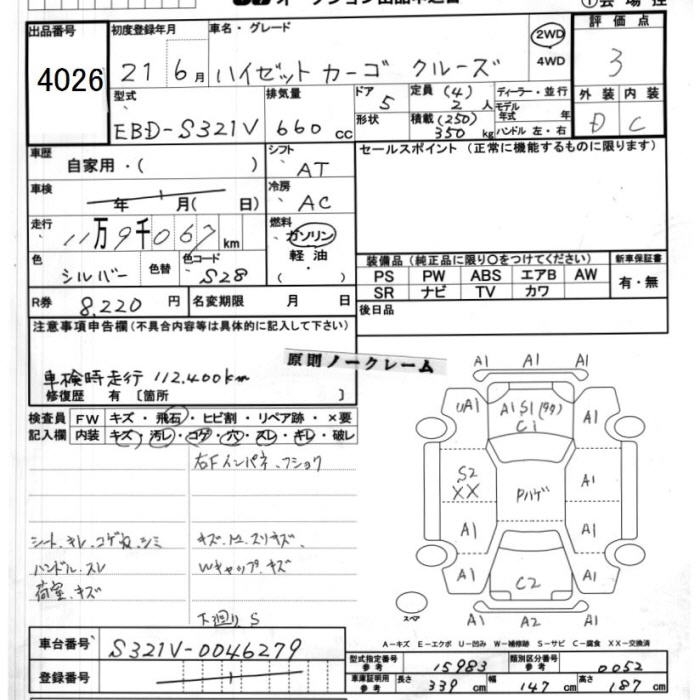 オークション出品申込書
出品番号
4026
初度登録年月
21年6月
車名・グレード
ハイゼットカーゴ クルーズ
2WD
4WD
評価点
3
外装 内装
D C
型式
EBD-S321V
排気量
660 cc
ドア
5
形状
定員 (4)
2 人
積載 (250)
350 kg
ディーラー・並行
モデル年式 年
ハンドル 左・右
車歴
自家用・( )
シフト
AT
セールスポイント (正常に機能するものに限ります)
車検
年 月( 日)
冷房
AC
走行
11万9千067 km
燃料
ガソリン
軽油
( )
色
シルバー
色替
色コード
S28
装備品 (純正品に限り○をつけてください)
PS PW ABS エアB AW
SR ナビ TV カワ
新車保証書
有・無
R券
8,220 円
名変期限 月 日
後日品
注意事項申告欄(不具合内容等は具体的に記入して下さい)
原則ノークレーム
車検時走行 112,400km
修復歴 有 〔箇所 〕
検査員記入欄
FW キズ・飛石・ヒビ割・リペア跡・×要
内装 キズ・汚レ・コゲ・穴・スレ・キレ・破レ
右Fインパネ.フショク
シート.キレ.コゲ穴.シミ
キズ.凹.スリキズ.
ハンドル.スレ
Wキャップ.キズ
荷室.キズ
下廻り S
A1 A1 A1
UA1 A1S1(タタ) A1
C1
S2 A1
XX
Pハゲ
A1 A1
A1 C2 A1
A1 A2 A1
スペア
A-キズ E-エクボ U-凹み W-補修跡 S-サビ C-腐食 XX-交換済
車台番号
S321V-0046279
登録番号
型式指定番号 参考
15983
類別区分番号 参考
0052
車庫証明用 参考
長さ 339 cm
幅 147 cm
高さ 187 cm